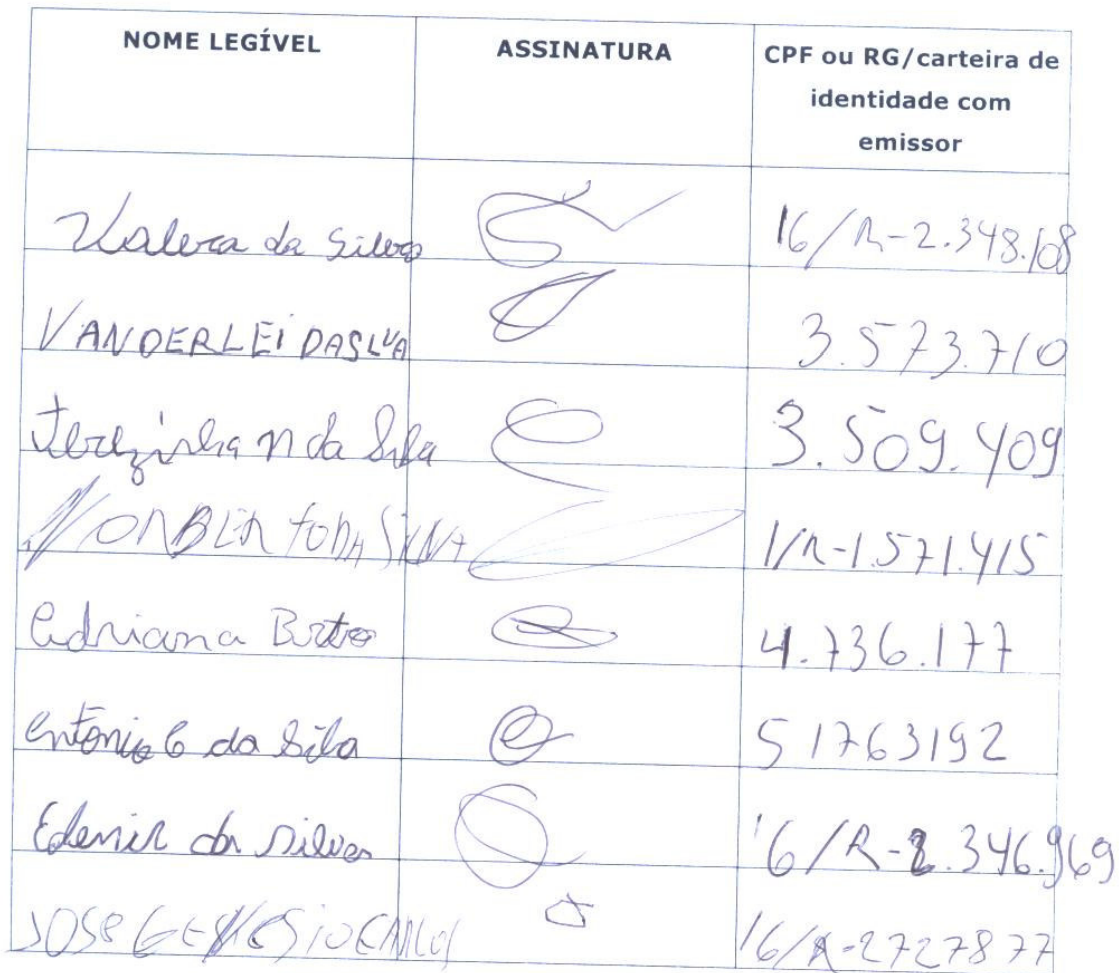 NOME LEGÍVEL ASSINATURA CPF ou RG/carteira de
identidade com
emissor
Valera da Silva 16/R-2.348.108
VANDERLEI DASLVA 3.573.710
Terezinha N da Silva 3.509.409
NORBERTO DA SILVA 1/R-1.571.415
Adriana Brito 4.736.177
Antonio C da Silva 51763192
Edemir da Silva 16/R-2.346.969
JOSE 16/R-2727877